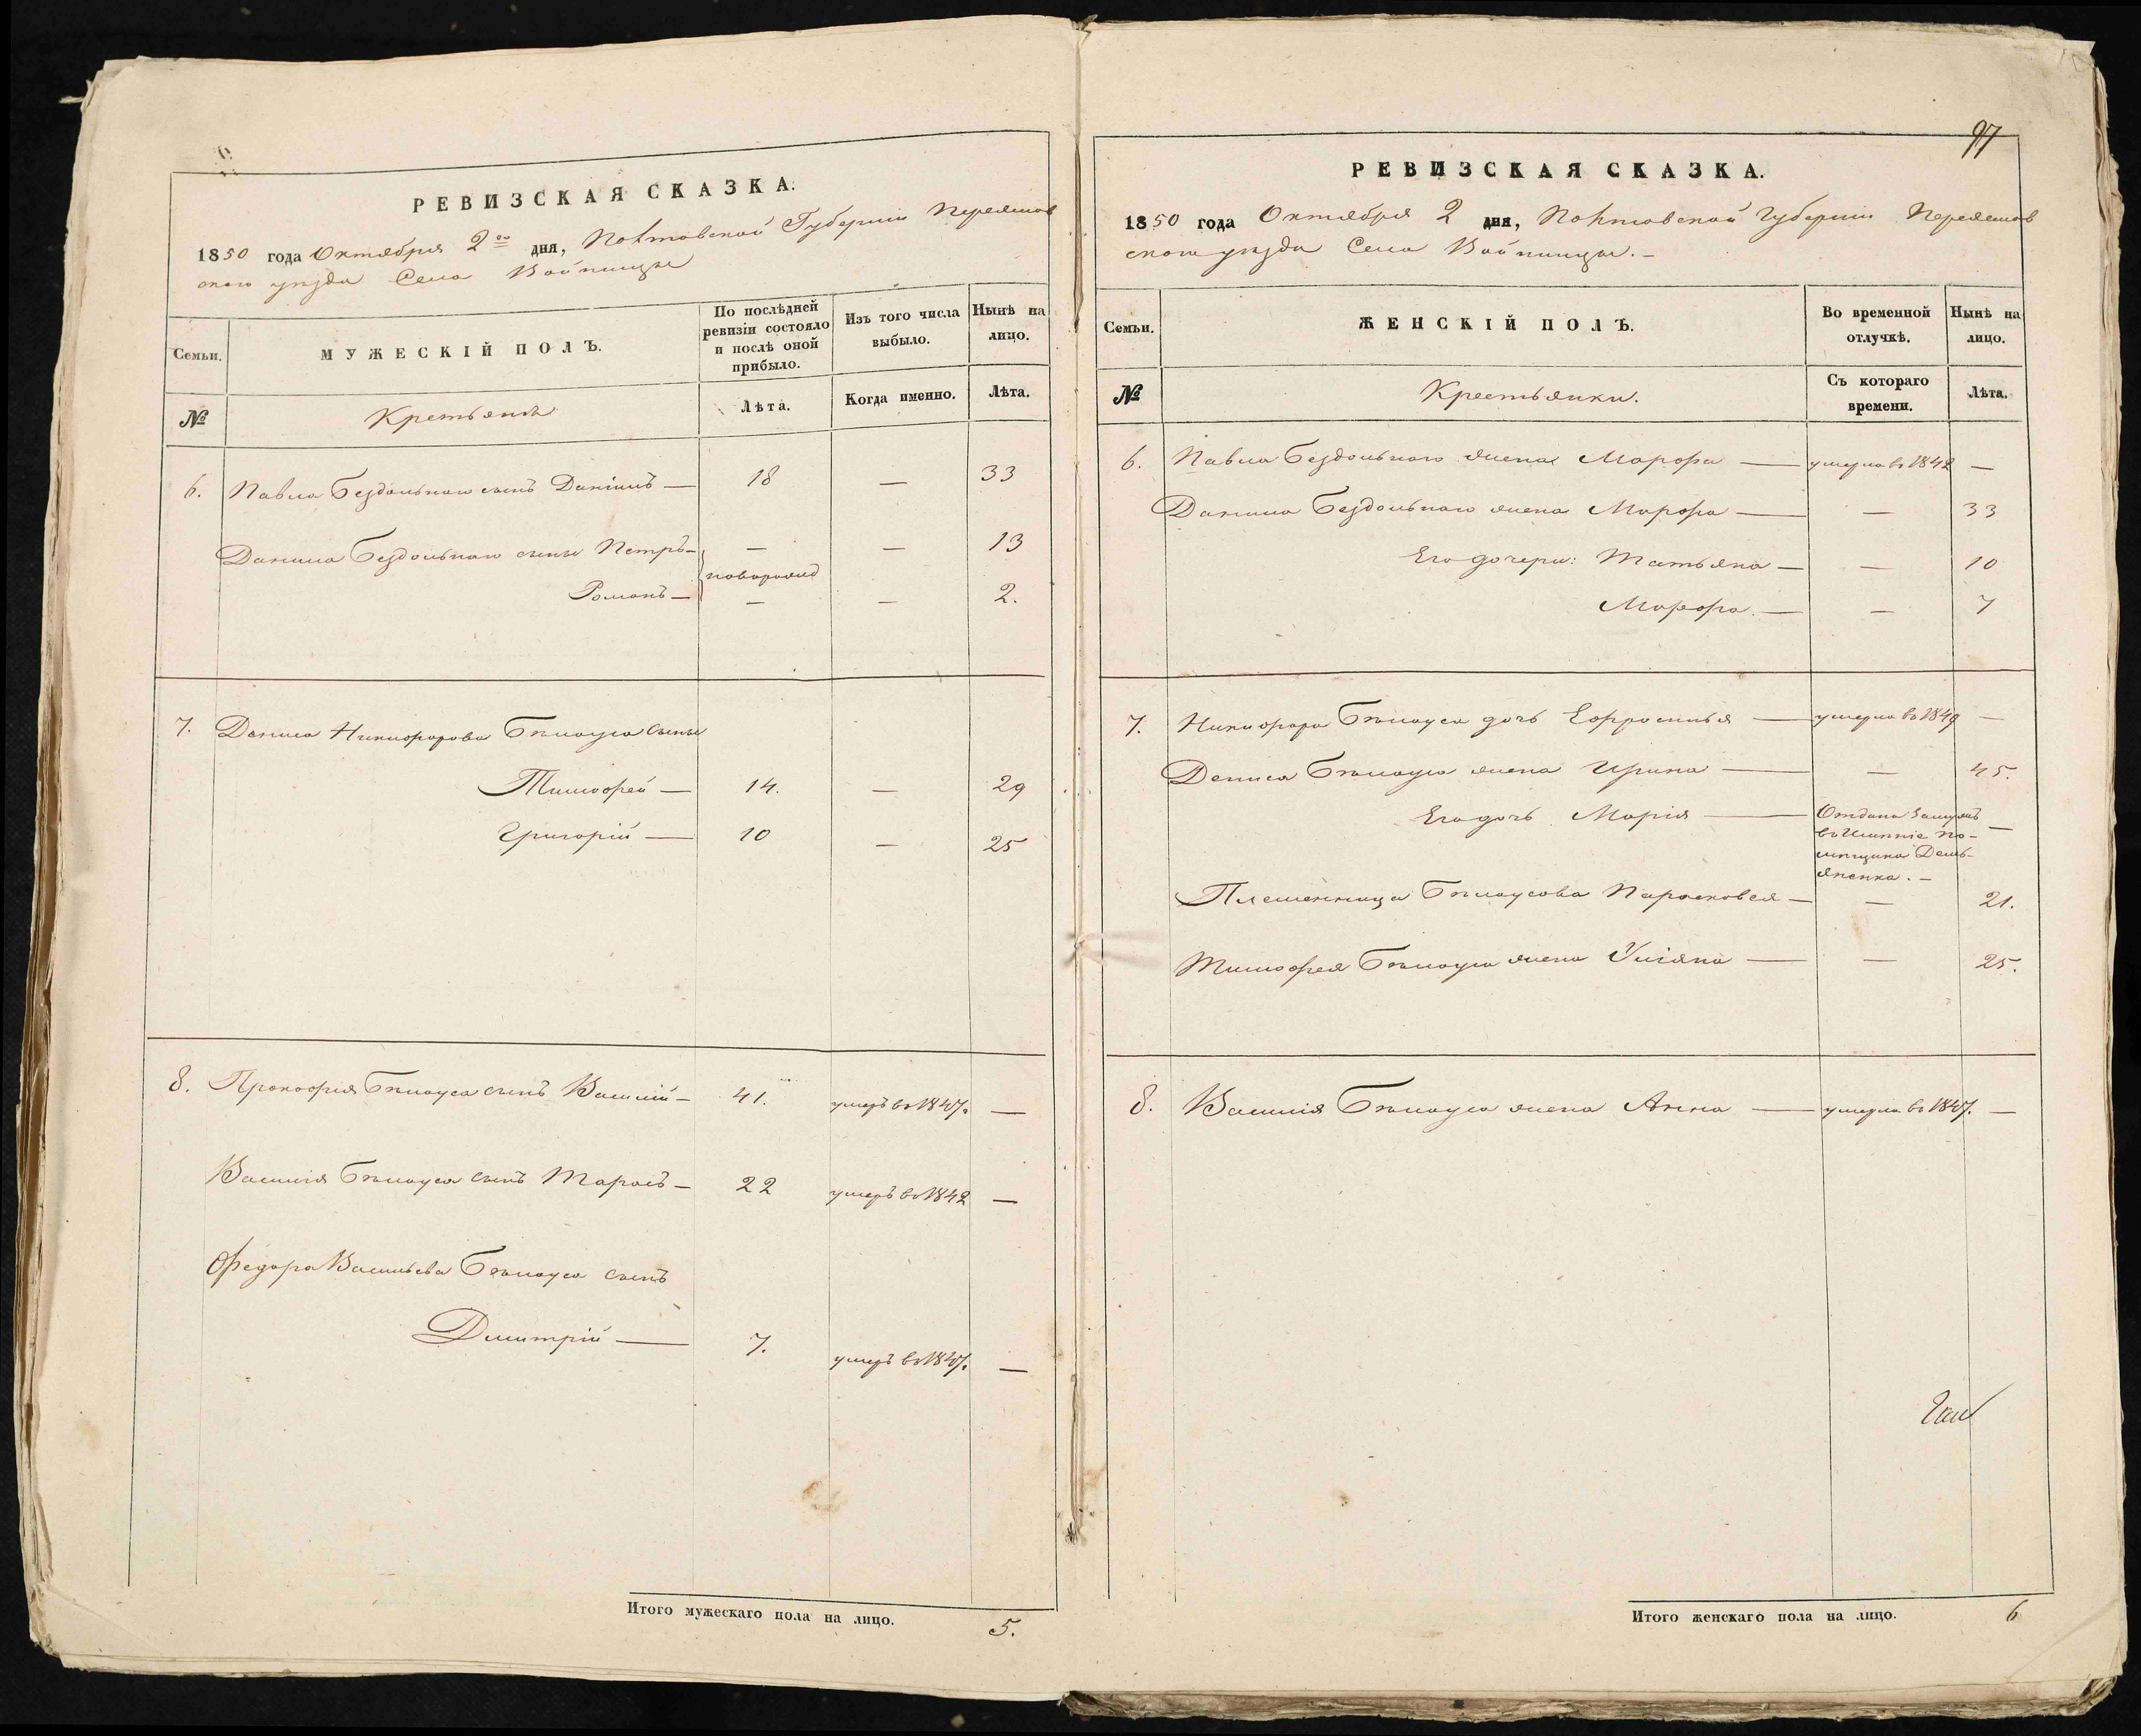 РЕВИЗСКАЯ СКАЗКА.
1850 года Октября 2го дня, Полтавской Губернии Переяслав
ского уѣзда Села Войницы
Семьи.
МУЖЕСКІЙ ПОЛЪ.
По послѣдней ревизіи состояло и послѣ оной прибыло.
Изъ того числа выбыло.
Нынѣ на лицо.
№
Крестьяне
Лѣта.
Когда именно.
Лѣта.
6. Павла Бездольнаго сынъ Даніилъ — 18 — 33
Данила Бездольнаго сыны Петръ — — — 13
новорожд
Романъ — — — 2.
7. Дениса Никифорова Бѣлоуса сыны
Тимофей — 14. — 29
Григорій — 10 — 25
8. Прокофія Бѣлоуса сынъ Василій — 41. умеръ въ 1847. —
Василія Бѣлоуса сынъ Тарасъ — 22 умеръ въ 1842 —
Федора Васильева Бѣлоуса сынъ
Дмитрій — 7. умеръ въ 1847. —
Итого мужескаго пола на лицо. 5.
97
РЕВИЗСКАЯ СКАЗКА.
1850 года Октября 2 дня, Полтавской Губерніи Переяслав
ского уѣзда Села Войницы. —
Семьи.
ЖЕНСКІЙ ПОЛЪ.
Во временной отлучкѣ.
Нынѣ на лицо.
№
Крестьянки.
Съ котораго времени.
Лѣта.
6. Павла Бездольнаго жена Марфа — умерла въ 1842 —
Данила Бездольнаго жена Марфа — — 33
Его дочери: Татьяна — — 10
Марфа. — — 7
7. Никифора Бѣлоуса дочь Ефросинья — умерла въ 1849 —
Дениса Бѣлоуса жена Ирина — — 45.
Его дочь Марія — Отдана замужъ —
въ Имѣніе по-
мѣщика Демь-
яненка. —
Племянница Бѣлоусова Парасковея — — 21.
Тимофея Бѣлоуса жена Уліяна — — 25.
8. Василія Бѣлоуса жена Анна — умерла въ 1847. —
Итого женскаго пола на лицо. 6